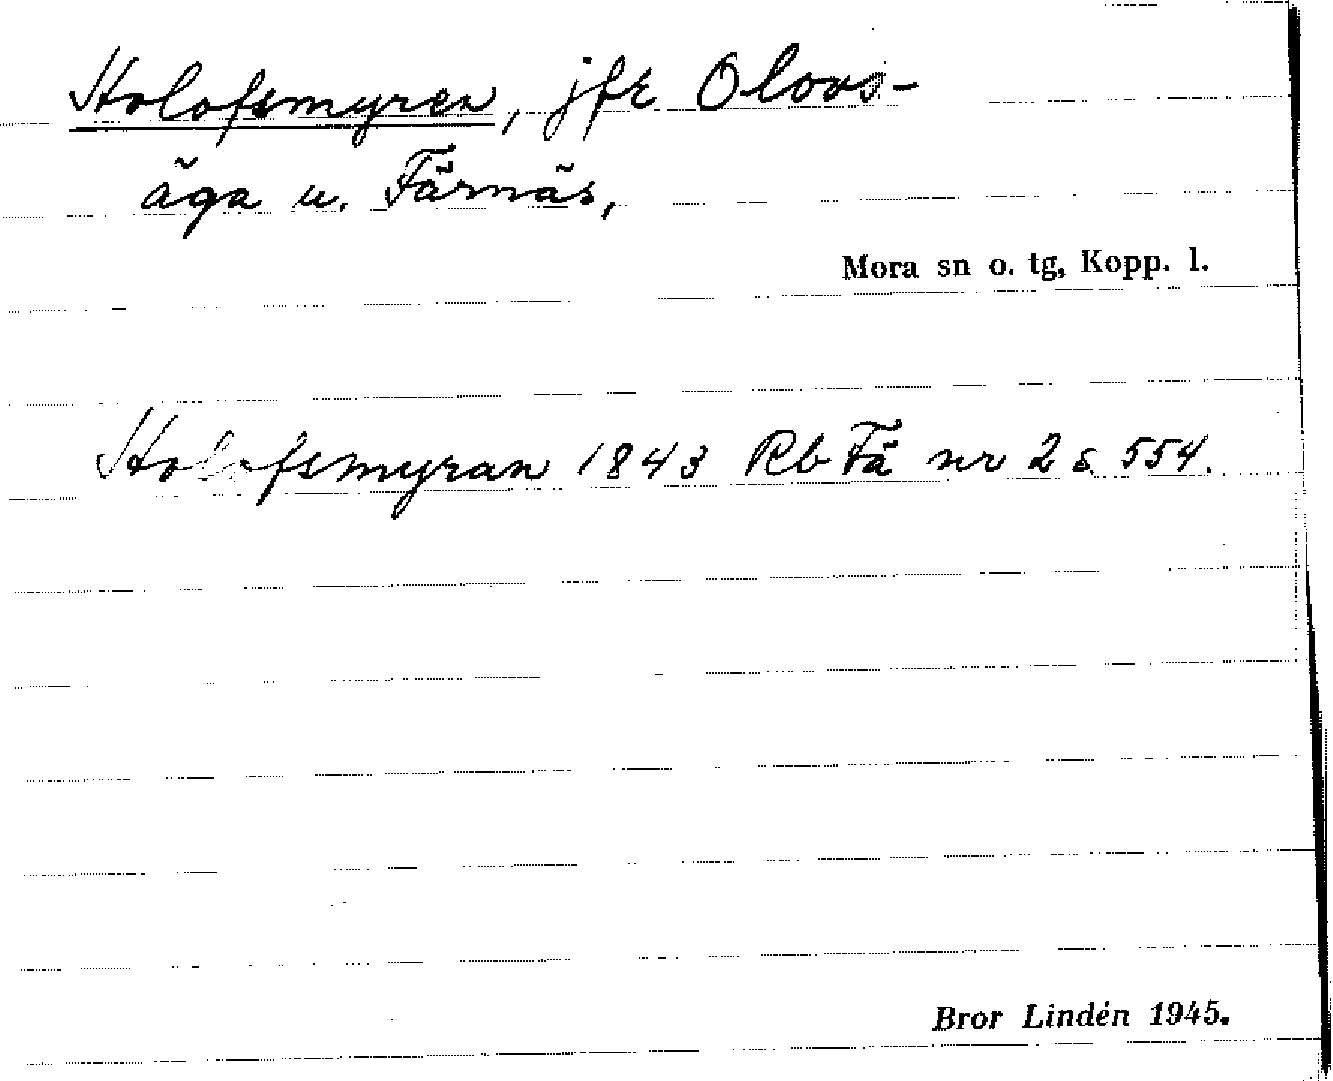 Holofsmyren, jfr Olovs-
äga u. Färnäs,
Mora sn o. tg, Kopp. l.
Holofsmyran 1843 Rb Fä nr 2 s 554.
Bror Lindén 1945.